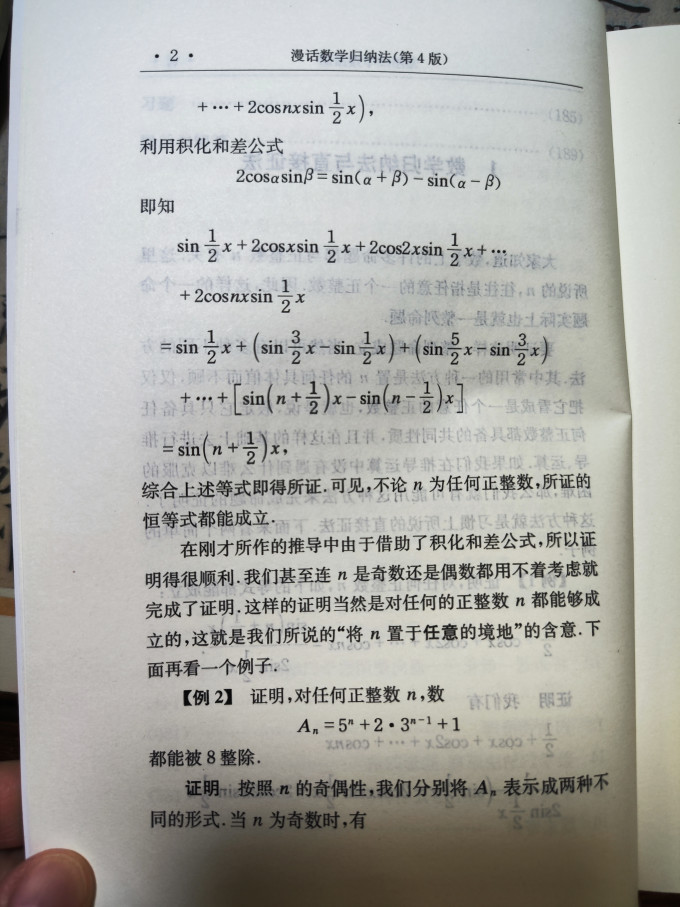 · 2 · 漫话数学归纳法(第 4 版)
+⋯+2cosnxsin 1/2 x),
利用积化和差公式
2cosαsinβ=sin(α+β)-sin(α-β)
即知
sin 1/2 x+2cosxsin 1/2 x+2cos2xsin 1/2 x+⋯
+2cosnxsin 1/2 x
=sin 1/2 x+(sin 3/2 x-sin 1/2 x)+(sin 5/2 x-sin 3/2 x)
+⋯+[sin(n+1/2)x-sin(n-1/2)x]
=sin(n+1/2)x,
综合上述等式即得所证.可见,不论 n 为任何正整数,所证的
恒等式都能成立.
在刚才所作的推导中由于借助了积化和差公式,所以证
明得很顺利.我们甚至连 n 是奇数还是偶数都用不着考虑就
完成了证明.这样的证明当然是对任何的正整数 n 都能够成
立的,这就是我们所说的“将 n 置于任意的境地”的含意.下
面再看一个例子.
【例 2】 证明,对任何正整数 n,数
Aₙ=5ⁿ+2·3ⁿ⁻¹+1
都能被 8 整除.
证明 按照 n 的奇偶性,我们分别将 Aₙ 表示成两种不
同的形式.当 n 为奇数时,有